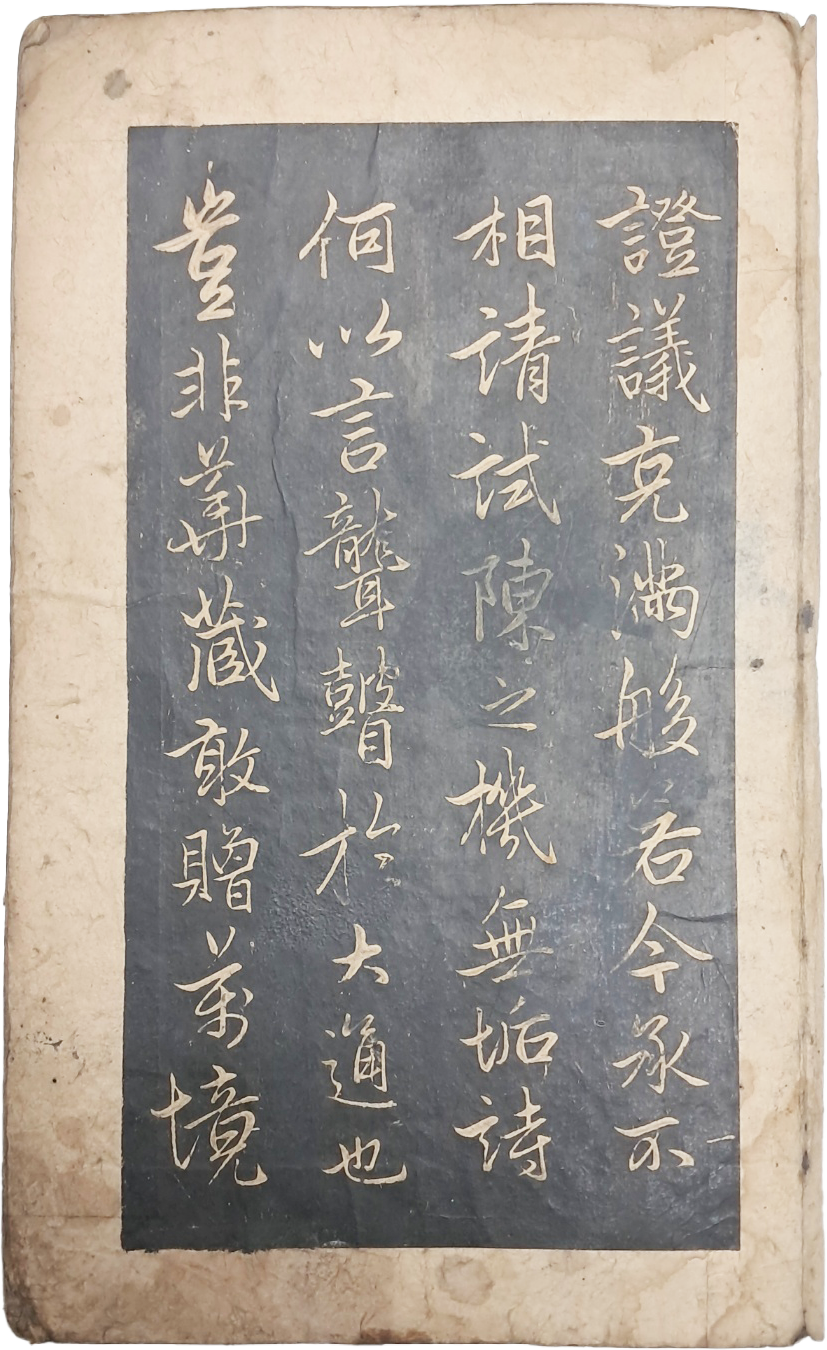 一
證議充滿般若今承不
相請試陳之機無垢詩
何以言聾瞽於大通也
豈非華藏敢贈萬境